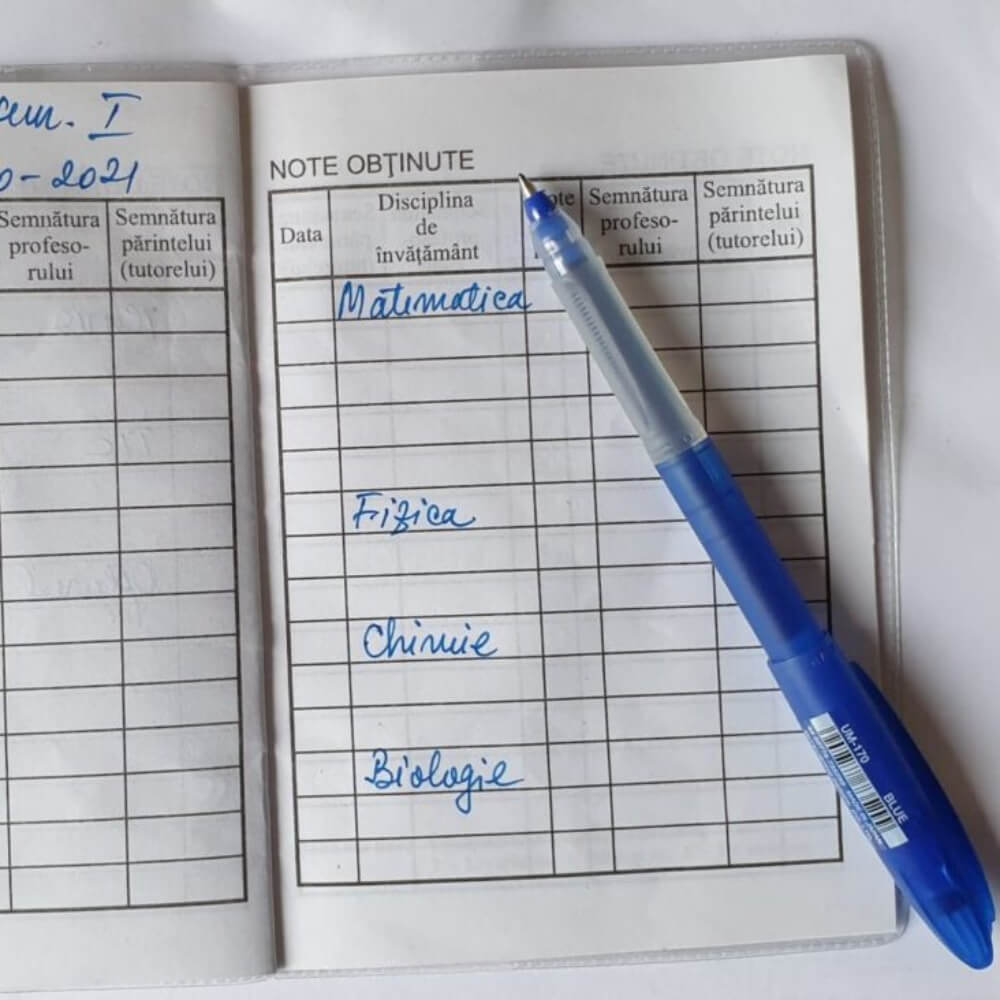 sem. I
0-2021
Semnătura profeso-rului
Semnătura părintelui (tutorelui)
NOTE OBŢINUTE
Data
Disciplina
de
învăţământ
Semnătura
profeso-
rului
Semnătura
părintelui
(tutorelui)
Matematica
Fizica
Chimie
Biologie
UM-170
BLUE